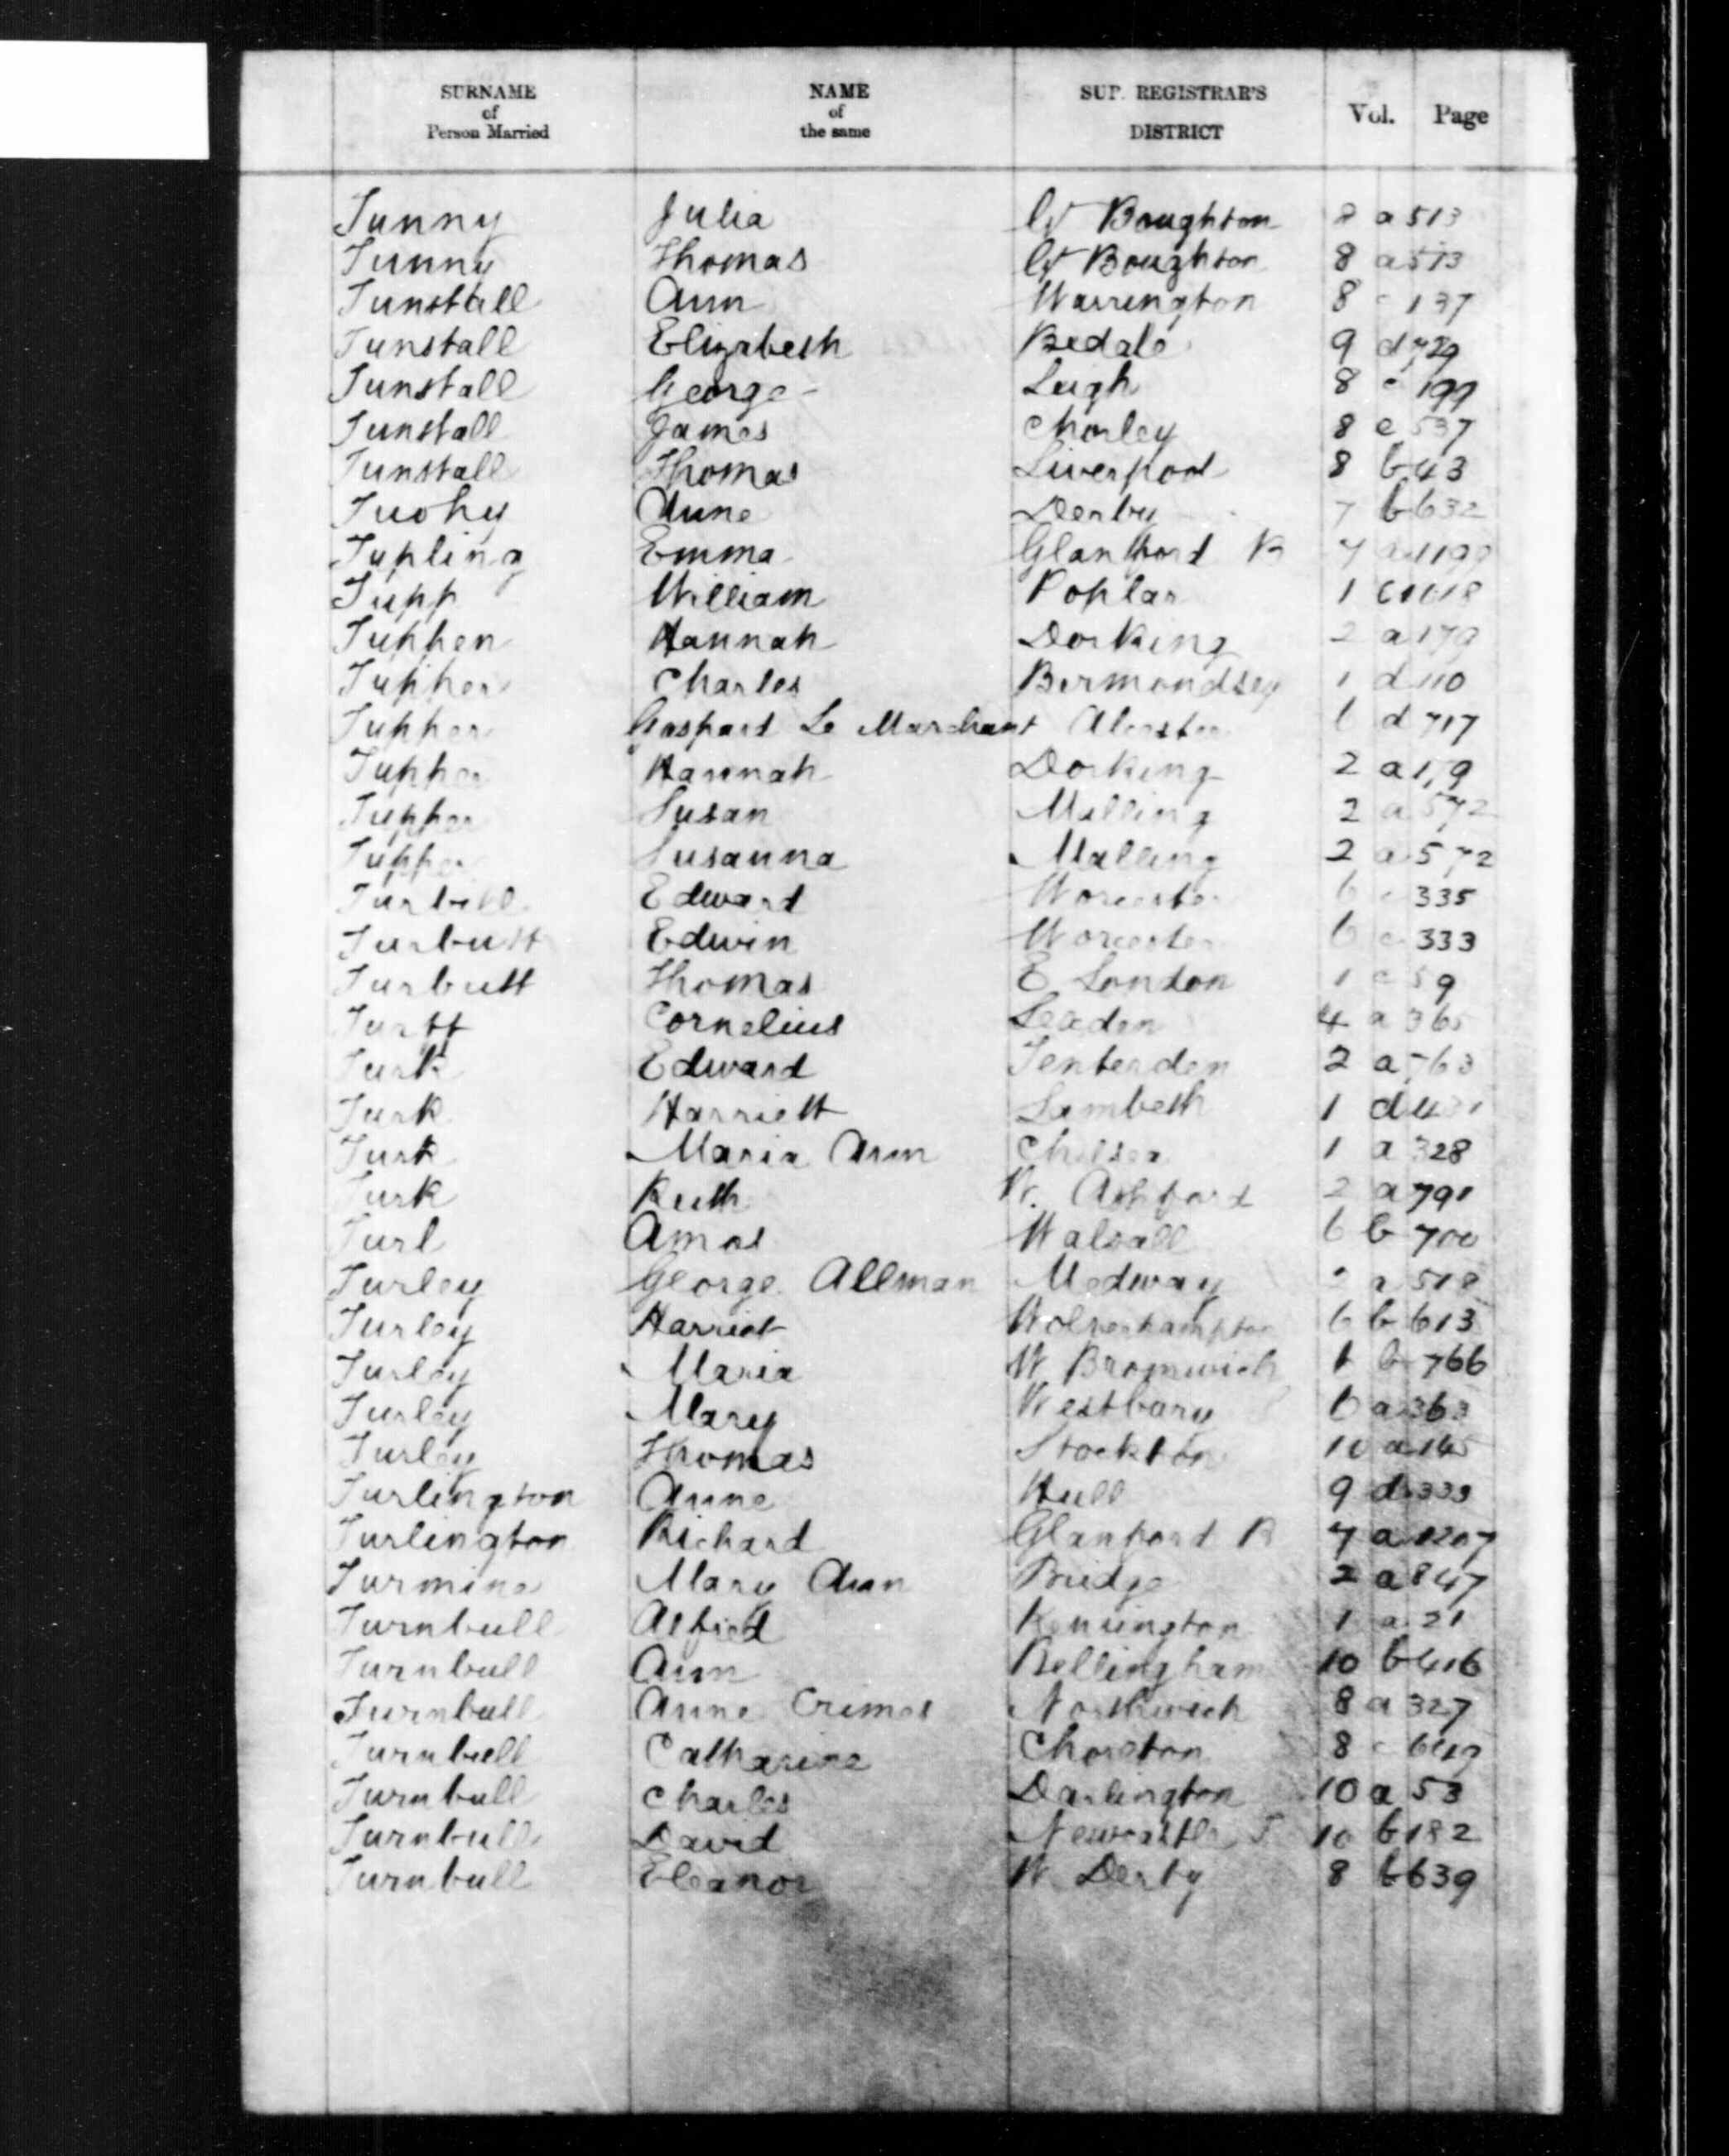 SURNAME of Person Married NAME of the same SUP. REGISTRAR'S DISTRICT Vol. Page
Tunny Julia Gt Boughton 8 a 513
Tunny Thomas Gt Boughton 8 a 513
Tunstall Ann Warrington 8 c 137
Tunstall Elizabeth Bedale 9 d 729
Tunstall George Leigh 8 c 199
Tunstall James Chorley 8 e 537
Tunstall Thomas Liverpool 8 b 43
Tuohy Anne Derby 7 b 632
Tupling Emma Glanford B 7 a
Tupp William Poplar 1 c
Tuppen Hannah Dorking 2 a 179
Tupper Charles Bermondsey 1 d 110
Tupper Gaspard Le Marchant Alcester 6 d 717
Tupper Hannah Dorking 2 a 179
Tupper Susan Malling 2 a 572
Tupper Susanna Malling 2 a 572
Turbill Edward Worcester 6 c 335
Turbutt Edwin Worcester 6 c 333
Turbutt Thomas E London 1 c 59
Turff Cornelius Lexden 4 a 365
Turk Edward Tenterden 2 a 763
Turk Harriett Lambeth 1 d
Turk Maria Ann Chelsea 1 a 328
Turk Ruth W. Ashford 2 a 791
Turl Amos Walsall 6 b 700
Turley George Allman Medway 2 a 518
Turley Harriet Wolverhampton 6 b 613
Turley Maria W Bromwich 6 b 766
Turley Mary Westbury 6 a 363
Turley Thomas Stockton 10 a 145
Turlington Anne Hull 9 d 333
Turlington Richard Glanford B 7 a 1207
Turmine Mary Ann Bridge 2 a 847
Turnbull Alfred Kensington 1 a 21
Turnbull Ann Bellingham 10 b 416
Turnbull Anne Crimes Northwich 8 a 327
Turnbull Catharine Chorlton 8 c
Turnbull Charles Darlington 10 a 53
Turnbull David Newcastle T 10 b 182
Turnbull Eleanor W Derby 8 b 639